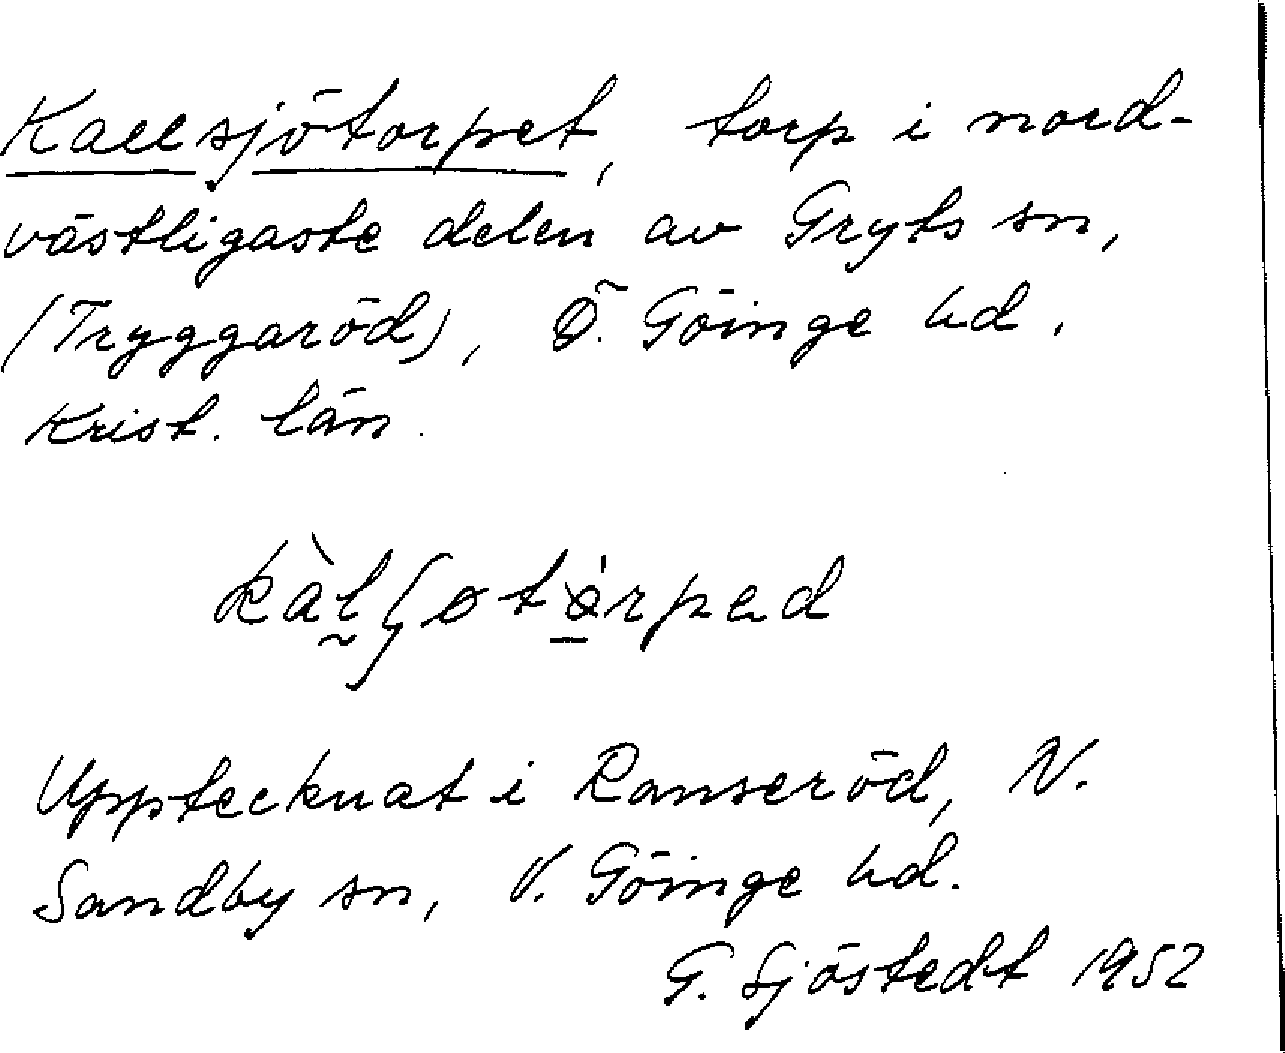 Kallsjötorpet, torp i nord-
västligaste delen av Gryts sn,
(Tryggaröd), Ö. Göinge hd.
Krist. län.
Upptecknat i Ranseröd, N.
Sandby sn, V. Göinge hd.
G. Sjöstedt 1952